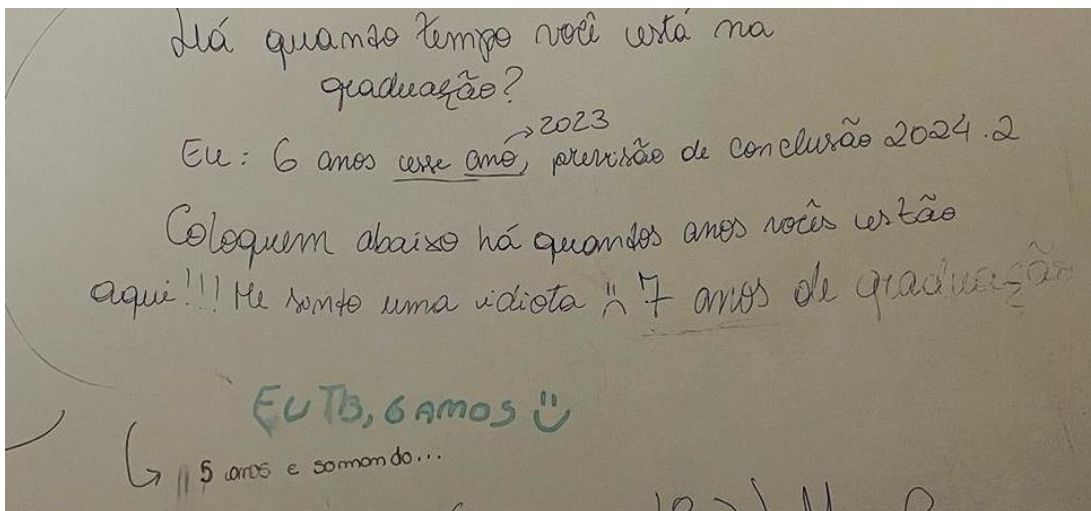 Há quanto tempo você está na
graduação?
→2023
Eu: 6 anos esse ano, previsão de conclusão 2024.2
Coloquem abaixo há quantos anos vocês estão
aqui!!! Me sinto uma idiota :( 7 anos de graduação
EU TB, 6 AMOS :)
↳ 5 anos e somando...